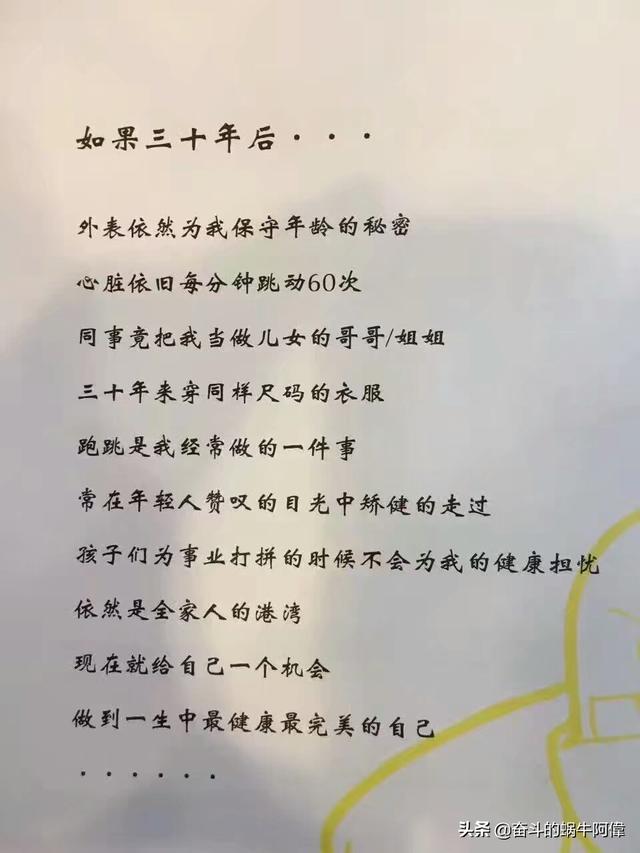 如果三十年后···
外表依然为我保守年龄的秘密
心脏依旧每分钟跳动60次
同事竟把我当做儿女的哥哥/姐姐
三十年来穿同样尺码的衣服
跑跳是我经常做的一件事
常在年轻人赞叹的目光中矫健的走过
孩子们为事业打拼的时候不会为我的健康担忧
依然是全家人的港湾
现在就给自己一个机会
做到一生中最健康最完美的自己
······
头条@奋斗的蜗牛阿偉